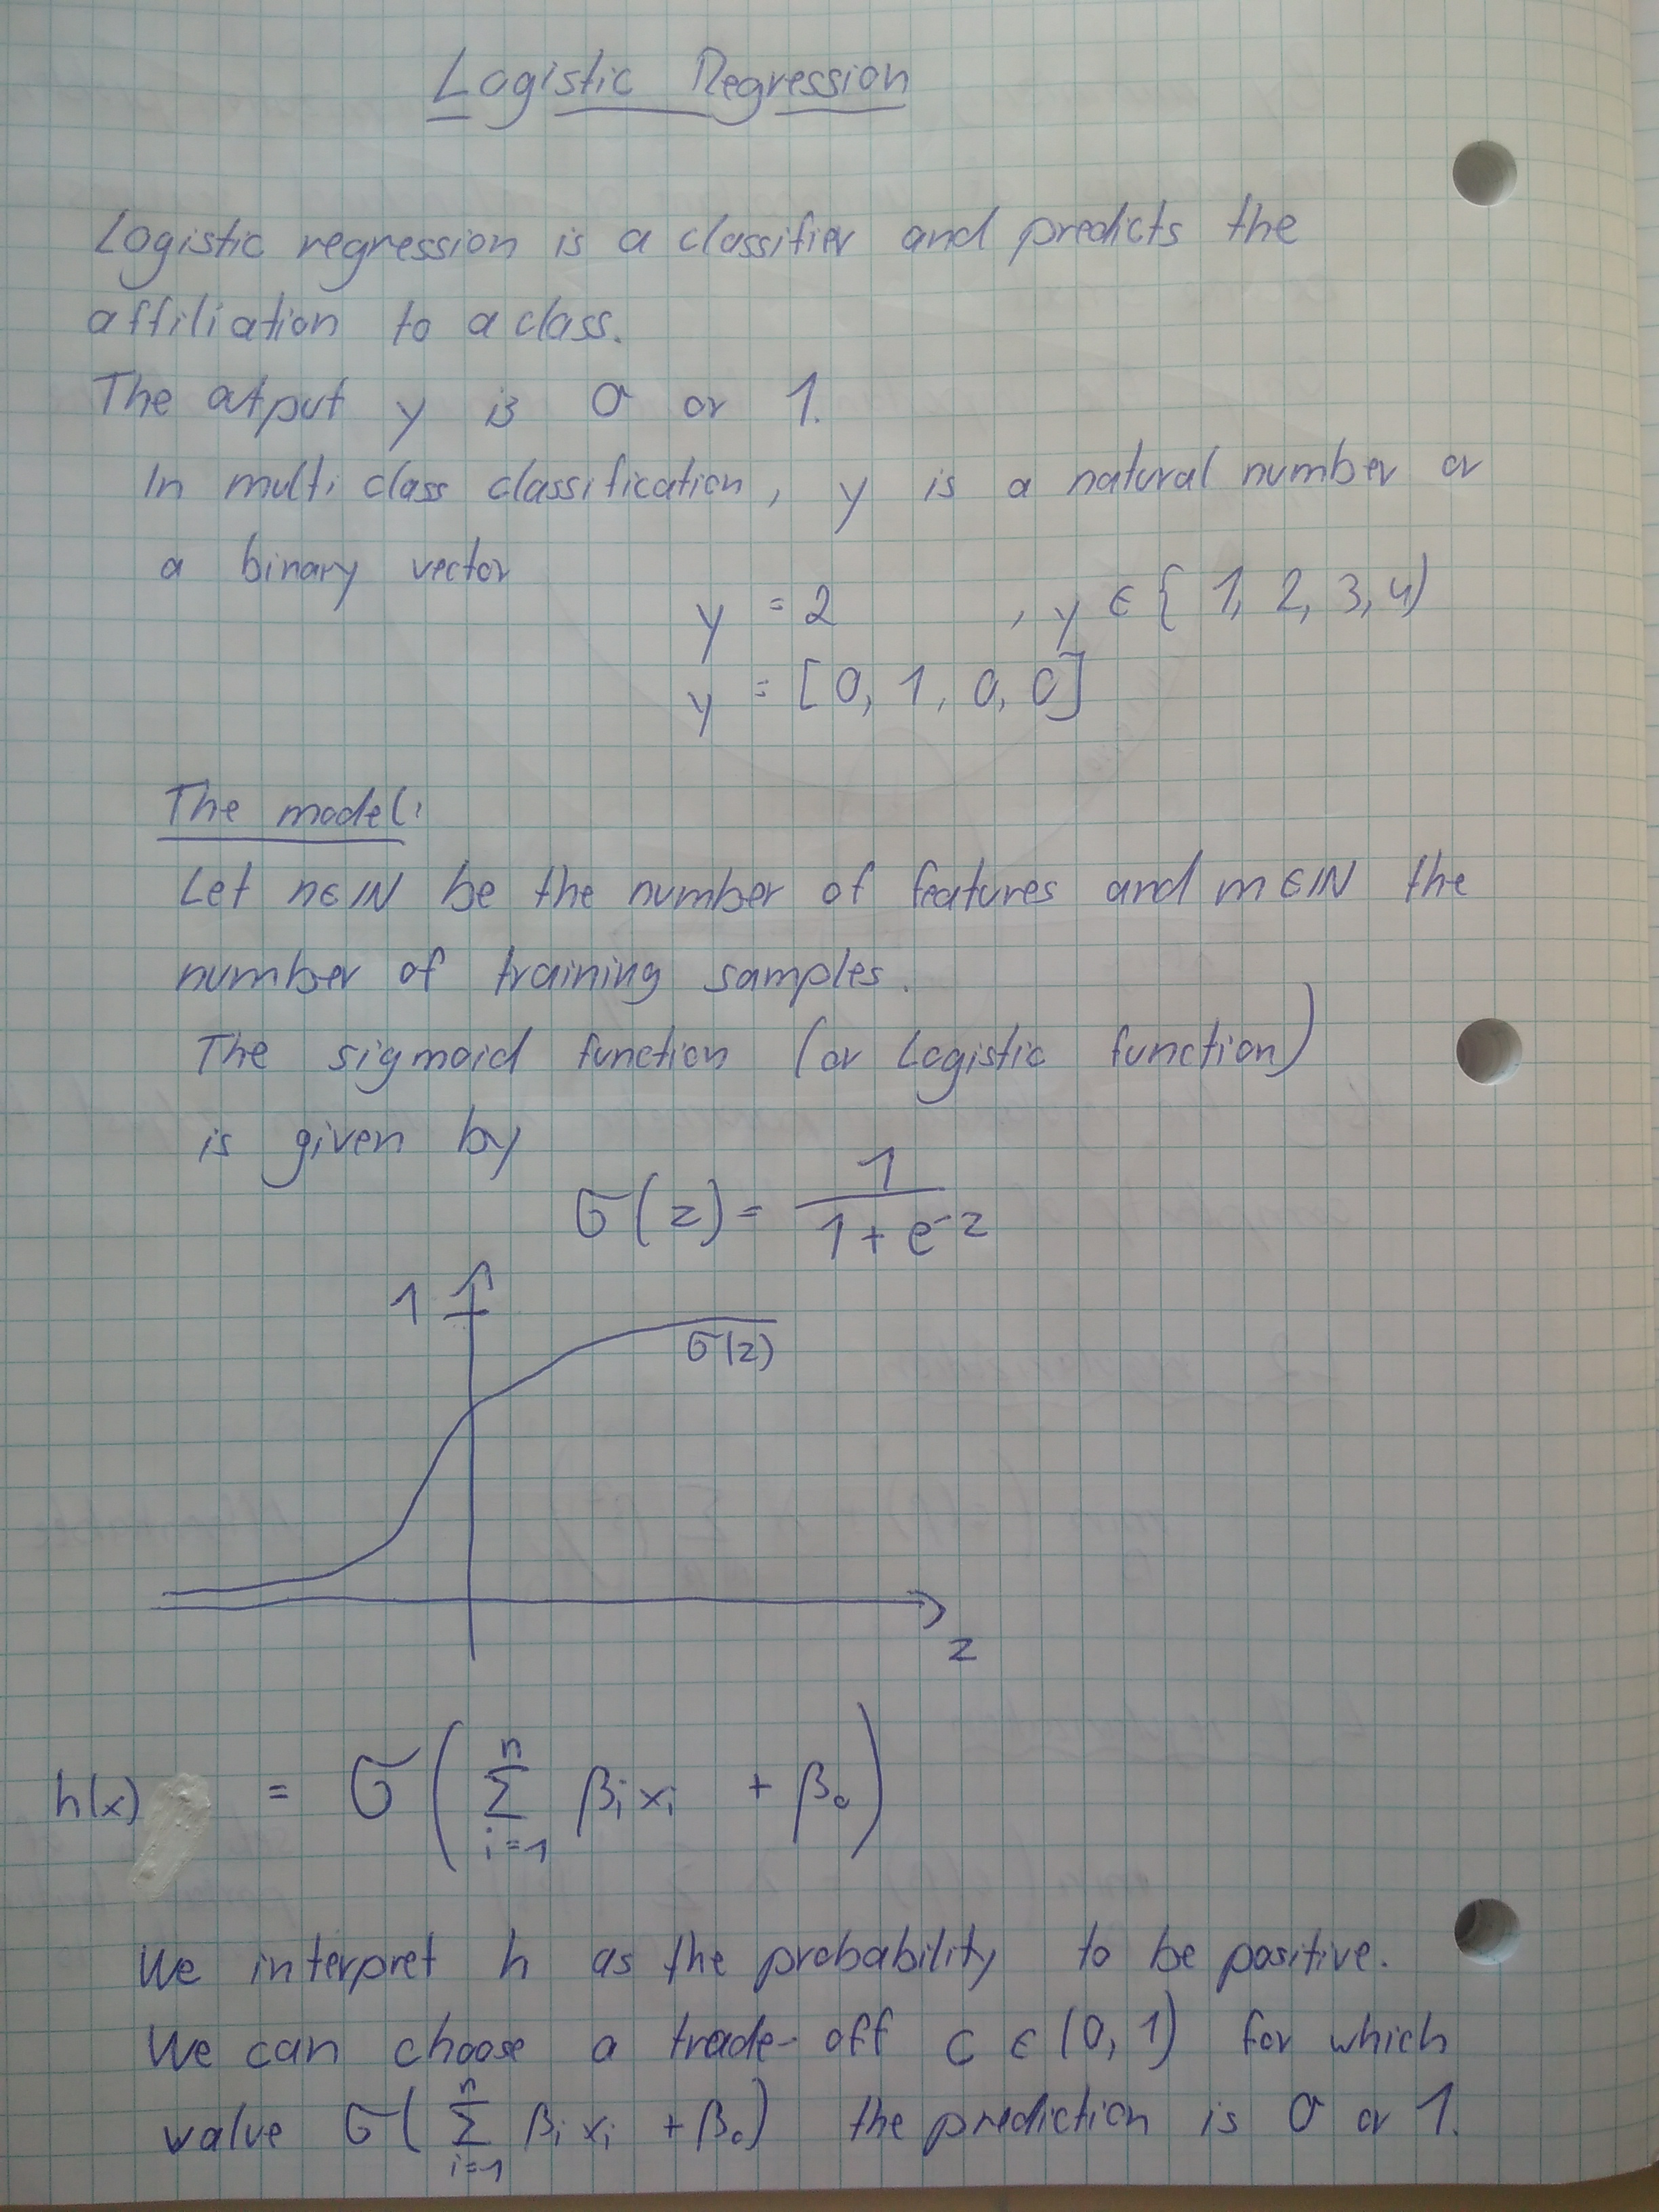 Logistic Regression
Logistic regression is a classifier and predicts the
affiliation to a class.
The output y is 0 or 1.
In multi class classification, y is a natural number or
a binary vector
y = 2 , y ∈ { 1, 2, 3, 4)
y = [0, 1, 0, 0]
The model:
Let n∈ℕ be the number of features and m∈ℕ the
number of training samples.
The sigmoid function (or Logistic function)
is given by
σ(z) = 1/(1 + e^-z)
1
σ(z)
z
h(x) = σ( ∑_{i=1}^{n} β_i x_i + β_0 )
We interpret h as the probability to be positive.
We can choose a trade-off c ∈ (0, 1) for which
value σ( ∑_{i=1}^{n} β_i x_i + β_0 ) the prediction is 0 or 1.